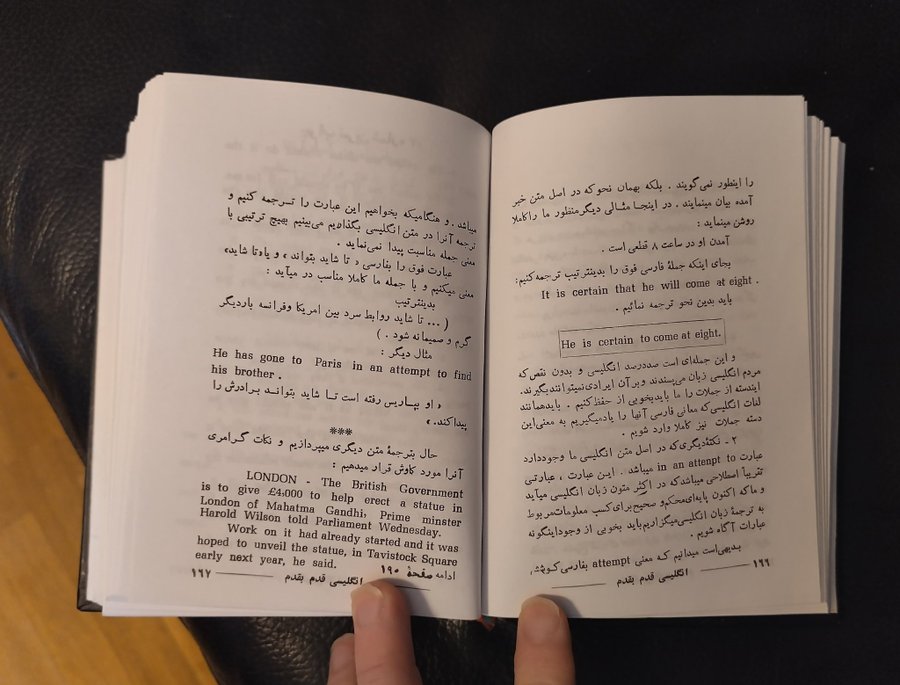 را اینطور نمی‌گویند . بلکه بهمان نحو که در اصل متن خبر
آمده بیان مینمایند . در اینجا مثالی دیگر منظور ما را کاملا
روشن مینماید :
آمدن او در ساعت ۸ قطعی است .
بجای اینکه جملهٔ فارسی فوق را بدینترتیب ترجمه کنیم:
It is certain that he will come at eight .
باید بدین نحو ترجمه نمائیم .
He is certain to come at eight.
و این جمله‌ای است صددرصد انگلیسی و بدون نقص که
مردم انگلیسی زبان می‌پسندند و بر آن ایرادی نمیتوانند بگیرند.
ایندسته از جملات را ما باید بخوبی از حفظ کنیم . باید همانند
لغات انگلیسی که معانی فارسی آنها را یاد میگیریم به معنی این
دسته جملات نیز کاملا وارد شویم .
۲ ـ نکتهٔ دیگری که در اصل متن انگلیسی ما وجود دارد
عبارت in an attenpt to میباشد . این عبارت ، عبارتی
تقریباً اصطلاحی میباشد که در اکثر متون زبان انگلیسی میآید
و ما که اکنون پایه‌ای محکم و صحیح برای کسب معلومات مربوط
به ترجمهٔ زبان انگلیسی میگزاریم باید بخوبی از وجود اینگونه
عبارات آگاه شویم .
بدیهی است میدانیم که معنی attempt بفارسی کوشش،
۱۶۶ انگلیسی قدم بقدم
میباشد . و هنگامیکه بخواهیم این عبارت را ترجمه کنیم و
ترجمه آنرا در متن انگلیسی بگذاریم می‌بینیم بهیچ ترتیبی با
معنی جمله مناسبت پیدا نمی‌نماید .
عبارت فوق را بفارسی « تا شاید بتواند » و یا «تا شاید»
معنی میکنیم و با جمله ما کاملا مناسب در میآید :
بدینترتیب
( ... تا شاید روابط سرد بین امریکا وفرانسه باردیگر
گرم و صمیمانه شود . )
مثال دیگر :
He has gone to Paris in an attempt to find
his brother .
« او بپاریس رفته است تا شاید بتواند برادرش را
پیداکند. »
***
حال بترجمهٔ متن دیگری میپردازیم و نکات گرامری
آنرا مورد کاوش قرار میدهیم :
LONDON - The British Government
is to give £4,000 to help erect a statue in
London of Mahatma Gandhi, Prime minster
Harold Wilson told Parliament Wednesday.
Work on it had already started and it was
hoped to unveil the statue, in Tavistock Square
early next year, he said.
ادامه صفحهٔ ۱۹۰
انگلیسی قدم بقدم ۱۶۷